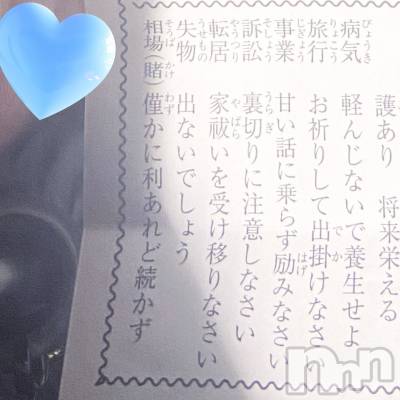 護あり 将来栄える
病気 軽んじないで養生せよ
旅行 お祈りして出掛けなさ
事業 甘い話に乗らず励みなさい
訴訟 裏切りに注意しなさい
転居 家祓いを受け移りなさい
失物 出ないでしょう
相場(賭) 僅かに利あれど続かず